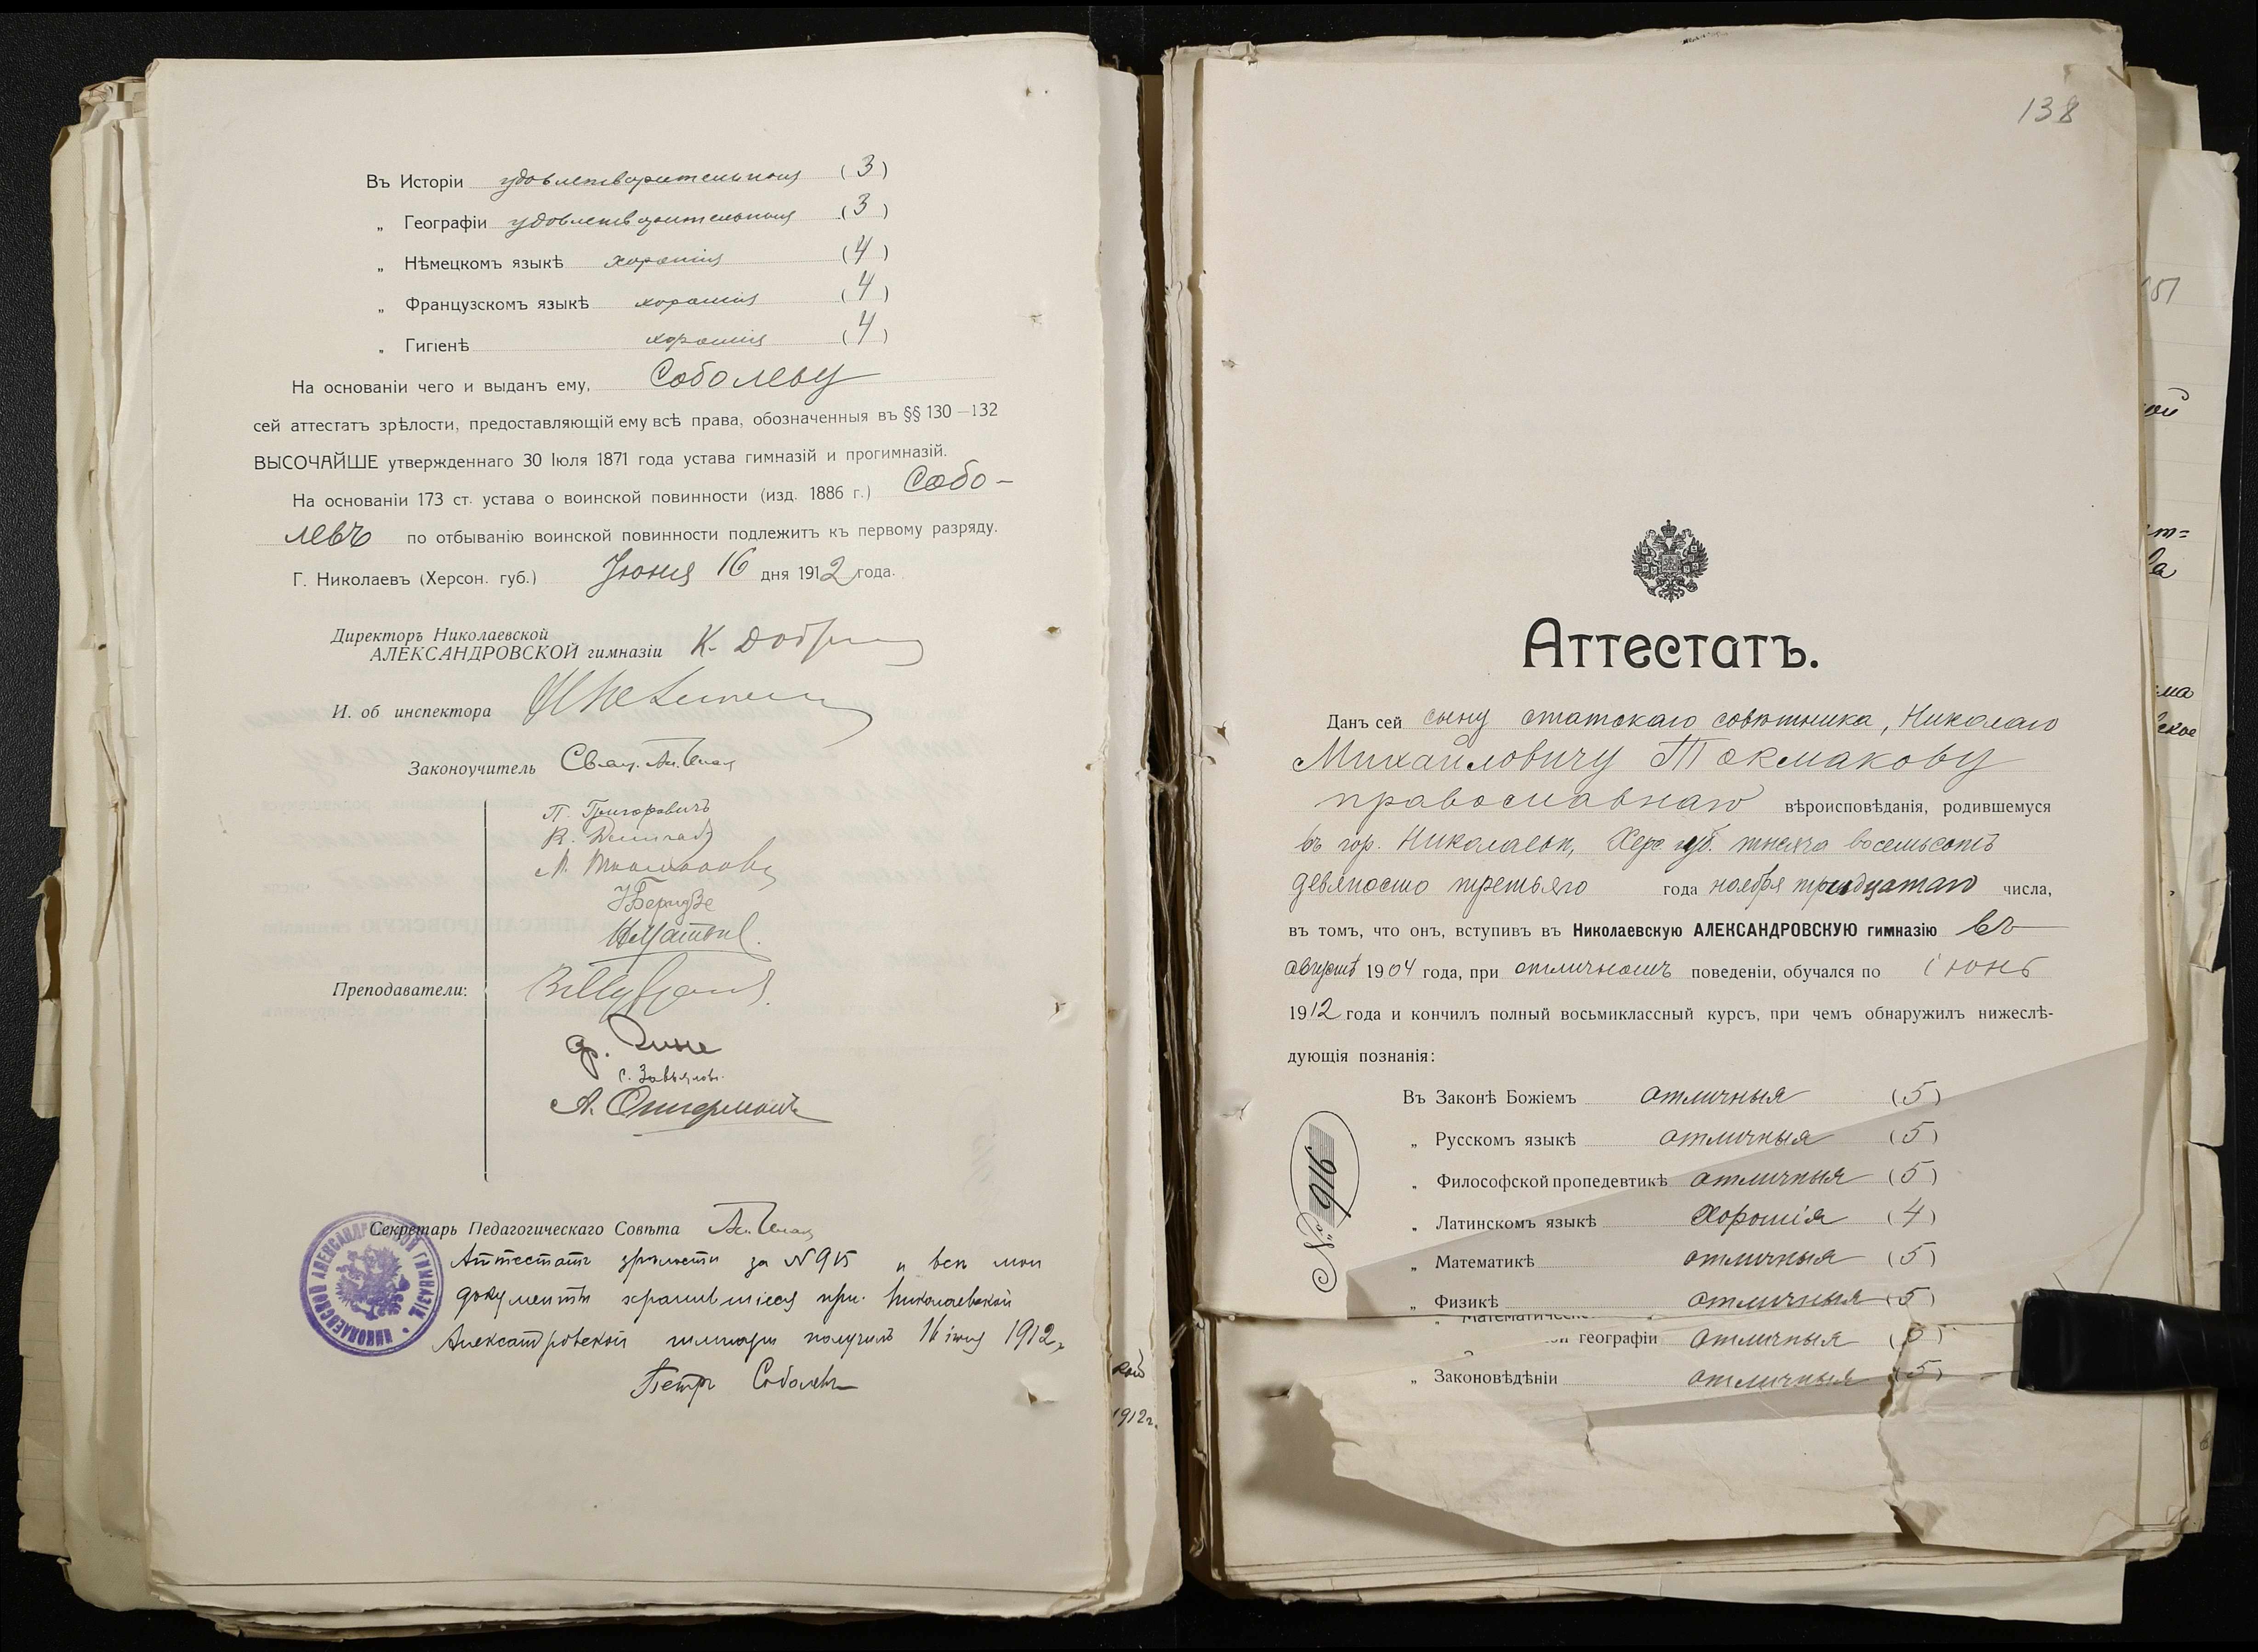 Въ Исторіи удовлетворительныя (3)
„ Географіи удовлетворительныя (3)
„ Нѣмецкомъ языкѣ хорошія (4)
„ Французскомъ языкѣ хорошія (4)
„ Гигіенѣ хорошія (4)
На основаніи чего и выданъ ему, Соболеву
сей аттестатъ зрѣлости, предоставляющій ему всѣ права, обозначенныя въ §§ 130—132
ВЫСОЧАЙШЕ утвержденнаго 30 Іюля 1871 года устава гимназій и прогимназій.
На основаніи 173 ст. устава о воинской повинности (изд. 1886 г.) Собо-
левъ по отбыванію воинской повинности подлежитъ къ первому разряду.
Г. Николаевъ (Херсон. губ.) Іюня 16 дня 1912 года.
Директоръ Николаевской
АЛЕКСАНДРОВСКОЙ гимназіи К.
И. об инспектора
Законоучитель Свящ.
П. Григоровичъ
Преподаватели:
С. Завьяловъ.
Секретарь Педагогическаго Совѣта
НИКОЛАЕВСКОЙ АЛЕКСАНДРОВСКОЙ ГИМНАЗІИ
Аттестатъ зрѣлости за №915 и всѣ мои
документы хранившіеся при Николаевской
Александровской гимназіи получилъ 16 іюня 1912 г.
Петръ Соболевъ
1912г.
138
Аттестатъ.
Данъ сей сыну статскаго совѣтника, Николаю
Михайловичу Токмакову
православнаго вѣроисповѣданія, родившемуся
въ гор. Николаевѣ, Херс губ. тысяча восемьсотъ
девяносто третьяго года ноября тридцатаго числа,
въ томъ, что онъ, вступивъ въ Николаевскую АЛЕКСАНДРОВСКУЮ гимназію въ
августѣ 1904 года, при отличномъ поведеніи, обучался по іюнь
1912 года и кончилъ полный восьмиклассный курсъ, при чемъ обнаружилъ нижеслѣ-
дующія познанія:
Въ Законѣ Божіемъ отличныя (5)
„ Русскомъ языкѣ отличныя (5)
„ Философской пропедевтикѣ отличныя (5)
„ Латинскомъ языкѣ Хорошія (4)
„ Математикѣ отличныя (5)
„ Физикѣ отличныя (5)
географіи отличныя (5)
„ Законовѣдѣніи отличныя (5)
№ 916